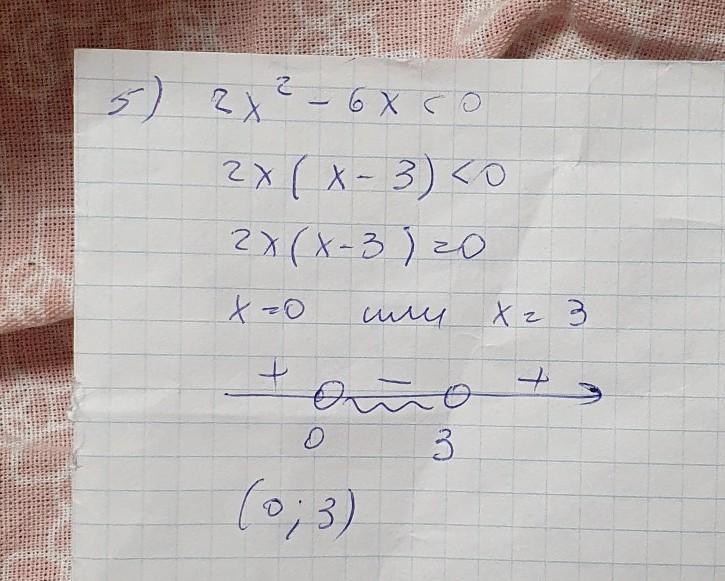 5) 2x² - 6x < 0
2x(x - 3) < 0
2x(x-3) = 0
x = 0 или x = 3
+ - +
0 3
(0; 3)